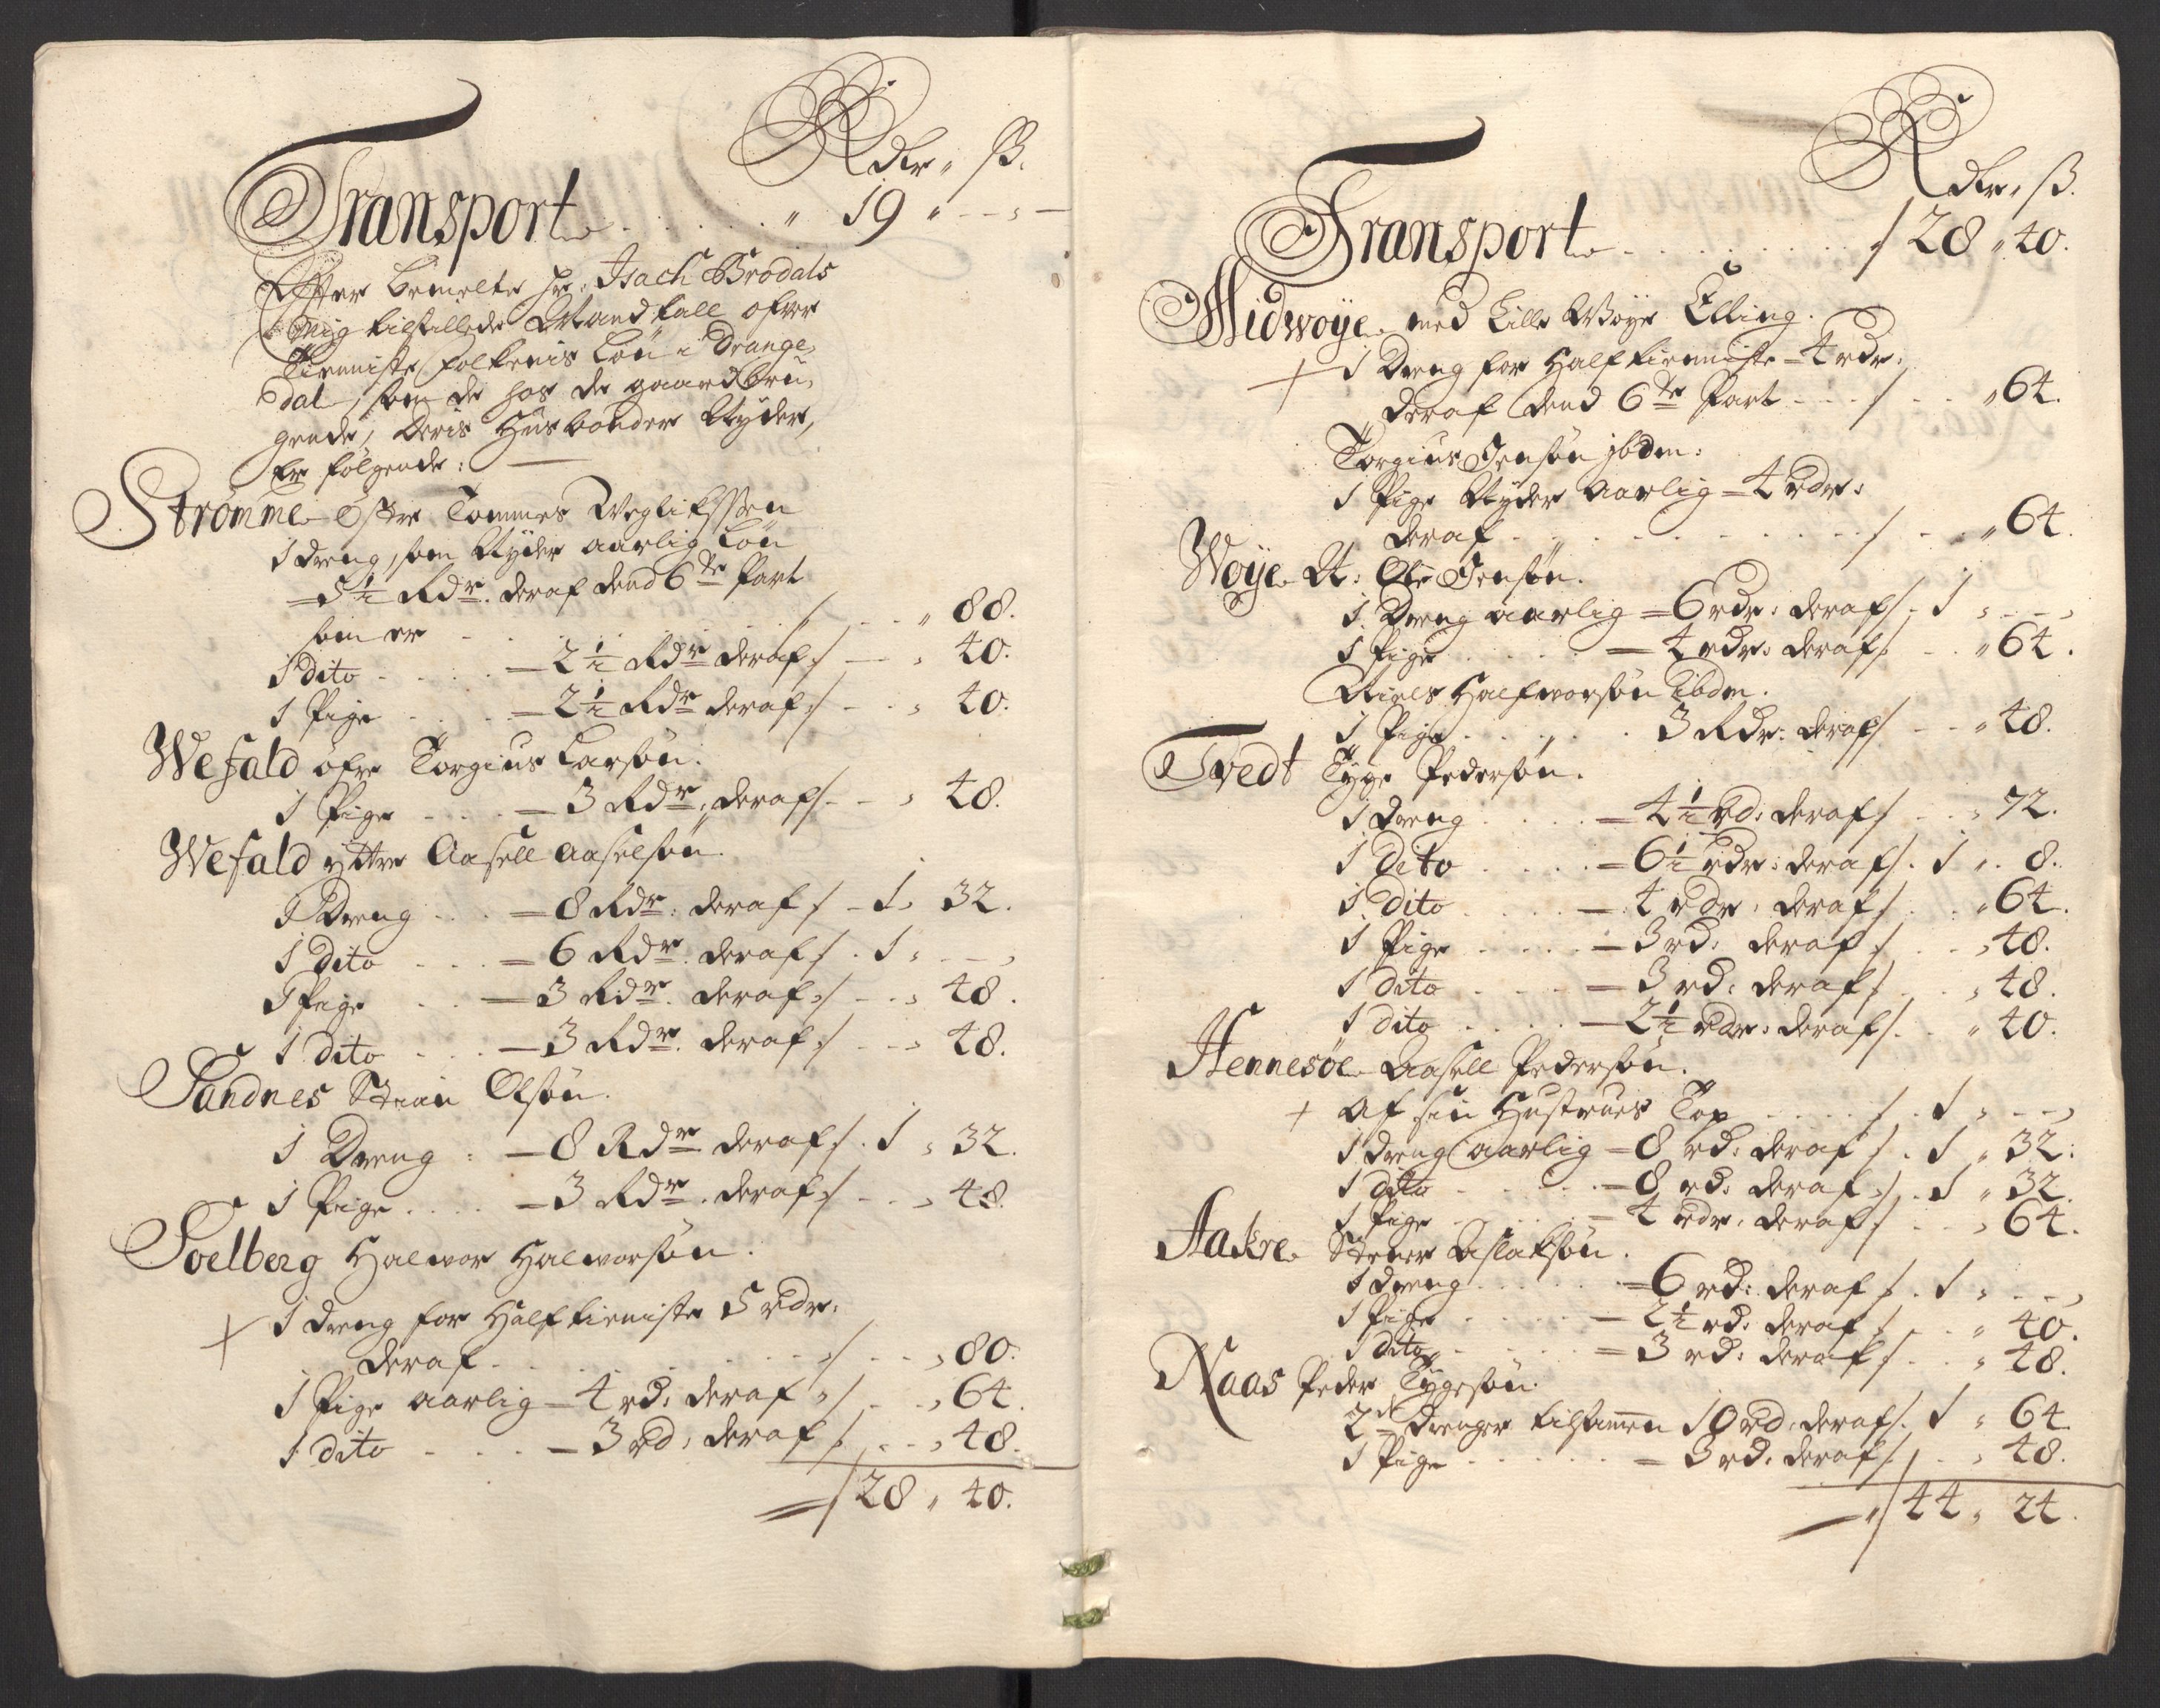 Rdlr „ ß.
Transport . . . . . „ 19 „ - - „ -
Efter bemelte Hr: Isach Brodals
mig tilstillede Mandtall ofver
Tienniste folkenis Lön i Drange-
dal, som de hos de gaardbru-
gende, Deris Husbonder Nyder,
Er følgende:
Strømme Østre Tommes Weglikssen
1 dreng, som Nyder aarlig Lön
= 5½ Rdr. deraf dend 6te Part
som er . . . . . „ 88.
1 dito . . . = 2½ Rdr deraf / - „ 40.
1 Pige . . . = 2½ Rdr deraf / - „ 40.
Wefald öfre Torgius Larsön.
1 Pige . . . = 3 Rdr, deraf / - „ 48.
Wefald ÿttre Aasell Aaselsön.
1 Dreng . . . = 8 Rdr: deraf / - 1 „ 32.
1 dito . . . = 6 Rdr. deraf / . 1 „ - -
1 Pige . . = 3 Rdr. deraf / - - „ 48.
1 dito . . . = 3 Rdr. deraf / - - „ 48.
Sandnes Steen Olsön.
1 Dreng : = 8 Rdr deraf / . 1 „ 32.
1 Pige . . . . = 3 Rdr. deraf / - - „ 48.
Soelberg Halwor Halworsön.
+ 1 dreng for Half tieniste 5 rdr:
deraf . . . . . / - - „ 80.
1 Pige aarlig = 4 rd: deraf „ / . . „ 64.
1 dito . . . = 3 rd, deraf / . . „ 48.
= / 28 „ 40.
Rdlr „ ß.
Transport . . . . . . / 28 „ 40.
Midwoÿe med Lille Woÿe Elling.
+ 1 Dreng for Half tienniste = 4 rdr:
deraf dend 6te Part . . . / . . „ 64.
Torgius Jensön ibdm:
1 Pige Nyder Aarlig = 4 rdr:
deraf . . . . . . / - . „ 64.
Woÿe N: Ole Jensön.
1 Dreng aarlig = 6 rdr: deraf / . 1 „ - -
1 Pige . . . . = 4 rdr: deraf / . . „ 64.
Niels Halfworsön ibdm.
1 Pige . . . . . 3 Rdr: deraf / - - „ 48.
Tvedt Tÿge Pedersön.
1 dreng . . . . = 4½ rd: deraf / . . „ 72.
1 Dito . . . . = 6½ rdr: deraf / . 1 „ 8.
1 dito . . . . = 4 rdr, deraf / . . „ 64.
1 Pige . . . . = 3 rd: deraf / . . „ 48.
1 dito . . . . = 3 rd: deraf / . . „ 48.
1 dito . . . . = 2½ rdr: deraf / . . „ 40.
Hennesøe Aasell Pedersön.
+ Af sin Hustrues . . . . / . 1 „ - -
1 dreng aarlig = 8 rd: deraf / . 1 „ 32:
1 dito . . . . = 8 rd: deraf / . 1 „ 32.
1 Pige . . . . = 4 rdr, deraf / . . „ 64.
Aakre Stener Aslaksön.
1 dreng . . . . = 6 rd: deraf / . 1 „ - -
1 Pige . . . . = 2½ rd: deraf / . . „ 40.
1 dito . . . . = 3 rd: deraf / . . „ 48.
Naas Peder Tygesön.
2de drenger tilsamen 10 rd: deraf / . 1 „ 64
1 Pige . . . . = 3 rd. deraf / . . „ 48.
= „ / 44 „ 24.